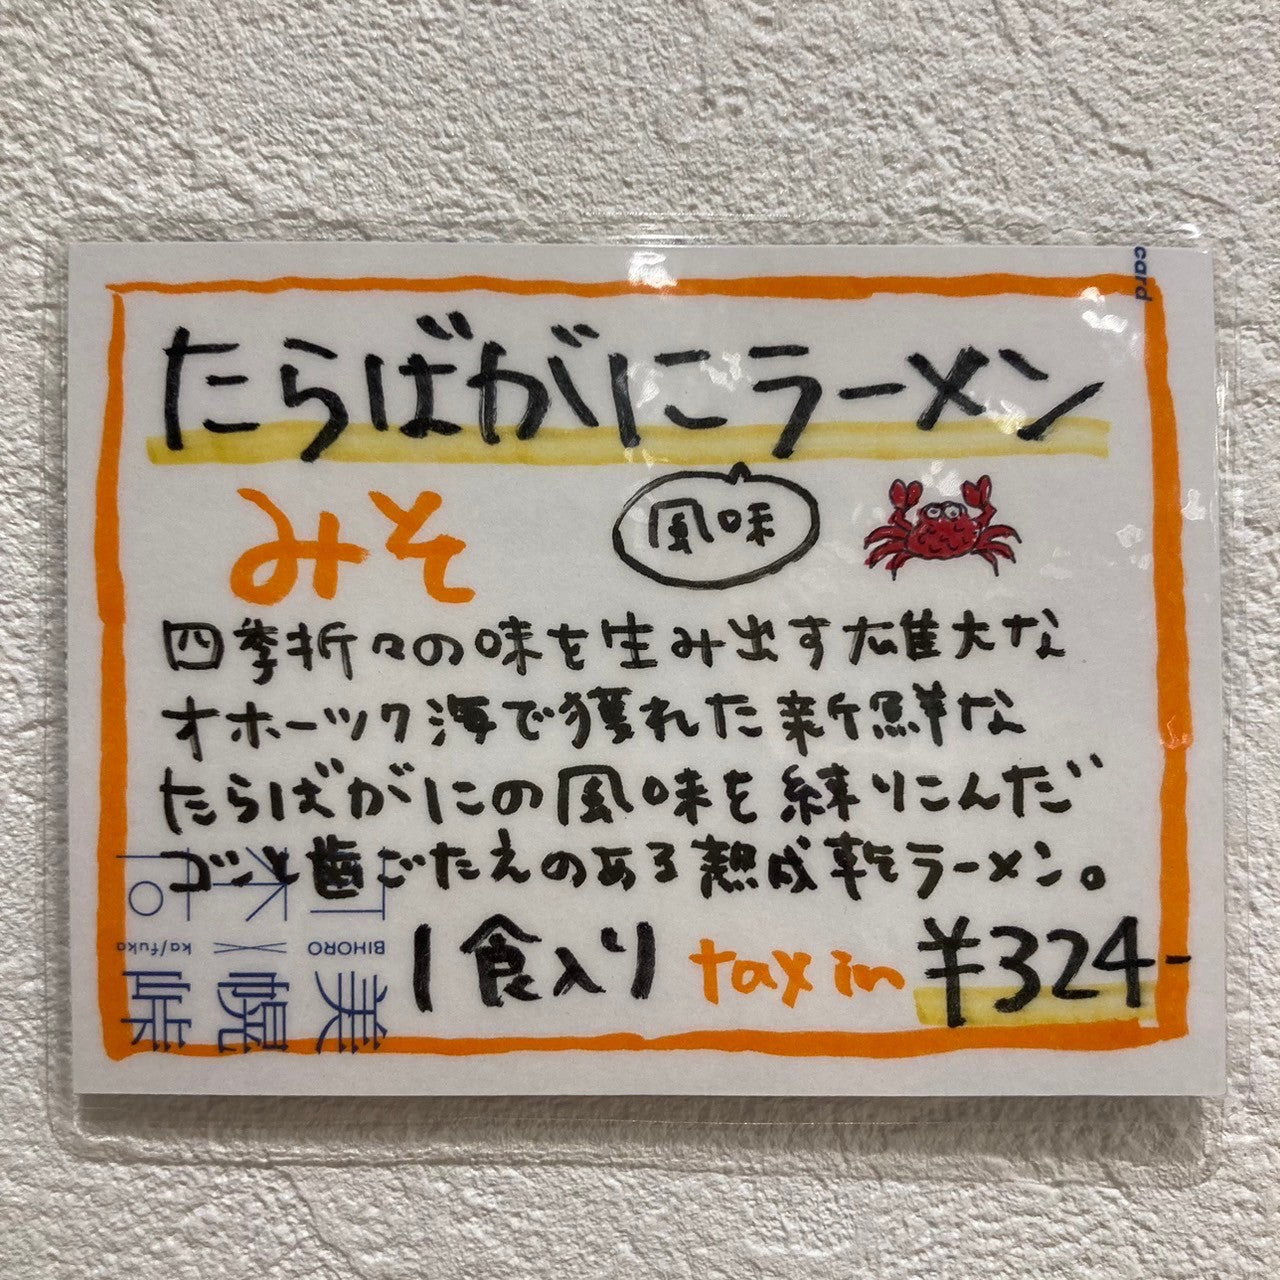 card
たらばがにラーメン
みそ
風味
四季折々の味を生み出す雄大な
オホーツク海で獲れた新鮮な
たらばがにの風味を練りこんだ
コシと歯ごたえのある熟成乾ラーメン。
1食入り tax in ¥324-
BIHORO × ka/fuka
美幌峠